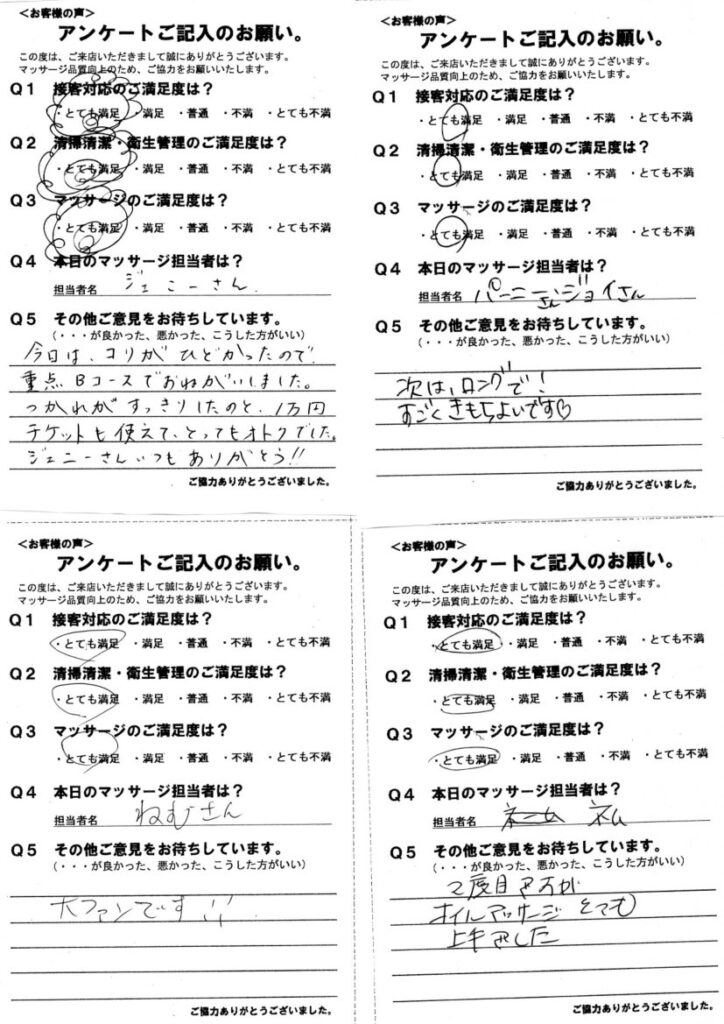 <お客様の声>
アンケートご記入のお願い。
この度は、ご来店いただきまして誠にありがとうございます。
マッサージ品質向上のため、ご協力をお願いいたします。
Q1 接客対応のご満足度は？
・とても満足 ・満足 ・普通 ・不満 ・とても不満
Q2 清掃清潔・衛生管理のご満足度は？
・とても満足 ・満足 ・普通 ・不満 ・とても不満
Q3 マッサージのご満足度は？
・とても満足 ・満足 ・普通 ・不満 ・とても不満
Q4 本日のマッサージ担当者は？
担当者名 ジェニーさん.
Q5 その他ご意見をお待ちしています。
（・・・が良かった、悪かった、こうした方がいい）
今日は、コリがひどかったので
重点Bコースでおねがいしました。
つかれがすっきりしたのと、1万円
チケットも使えて、とってもオトクでした。
ジェニーさんいつもありがとう!!
ご協力ありがとうございました。
<お客様の声>
アンケートご記入のお願い。
この度は、ご来店いただきまして誠にありがとうございます。
マッサージ品質向上のため、ご協力をお願いいたします。
Q1 接客対応のご満足度は？
・とても満足 ・満足 ・普通 ・不満 ・とても不満
Q2 清掃清潔・衛生管理のご満足度は？
・とても満足 ・満足 ・普通 ・不満 ・とても不満
Q3 マッサージのご満足度は？
・とても満足 ・満足 ・普通 ・不満 ・とても不満
Q4 本日のマッサージ担当者は？
担当者名 パーニーさん、ジョイさん
Q5 その他ご意見をお待ちしています。
（・・・が良かった、悪かった、こうした方がいい）
次は、ロングで！
すごくきもちよいです♡
ご協力ありがとうございました。
<お客様の声>
アンケートご記入のお願い。
この度は、ご来店いただきまして誠にありがとうございます。
マッサージ品質向上のため、ご協力をお願いいたします。
Q1 接客対応のご満足度は？
・とても満足 ・満足 ・普通 ・不満 ・とても不満
Q2 清掃清潔・衛生管理のご満足度は？
・とても満足 ・満足 ・普通 ・不満 ・とても不満
Q3 マッサージのご満足度は？
・とても満足 ・満足 ・普通 ・不満 ・とても不満
Q4 本日のマッサージ担当者は？
担当者名 ねむさん
Q5 その他ご意見をお待ちしています。
（・・・が良かった、悪かった、こうした方がいい）
大ファンです!!
ご協力ありがとうございました。
<お客様の声>
アンケートご記入のお願い。
この度は、ご来店いただきまして誠にありがとうございます。
マッサージ品質向上のため、ご協力をお願いいたします。
Q1 接客対応のご満足度は？
・とても満足 ・満足 ・普通 ・不満 ・とても不満
Q2 清掃清潔・衛生管理のご満足度は？
・とても満足 ・満足 ・普通 ・不満 ・とても不満
Q3 マッサージのご満足度は？
・とても満足 ・満足 ・普通 ・不満 ・とても不満
Q4 本日のマッサージ担当者は？
担当者名 ネム
Q5 その他ご意見をお待ちしています。
（・・・が良かった、悪かった、こうした方がいい）
2度目ですが
オイルマッサージ とても
上手でした
ご協力ありがとうございました。